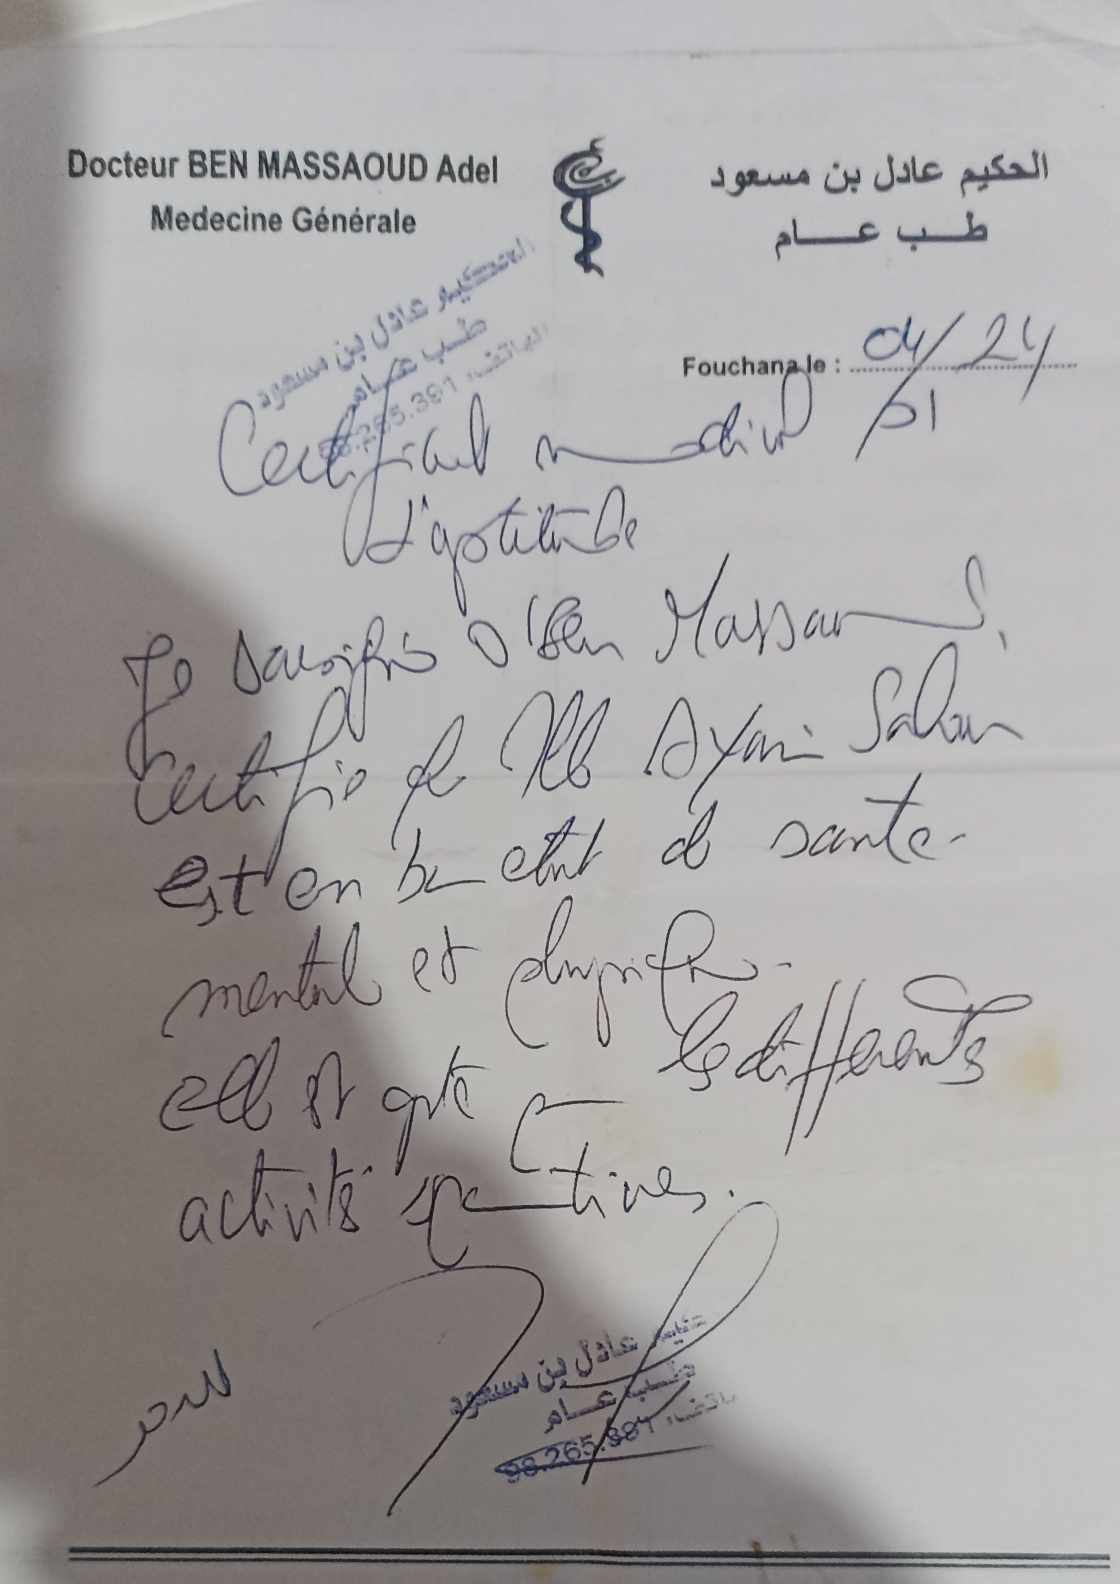 Docteur BEN MASSAOUD Adel
Medecine Générale
الحكيم عادل بن مسعود
طــب عـــام
الحكيم عادل بن مسعود
طــب عــام
الهاتف: 98.265.391
Fouchana le : 04/01/24
Certificat medical
d'aptitude
Je soussigné Dr Ben Massaoud,
certifie que Mlle Ayari
est en bon etat de santé
mental et physique.
elle est apte les différents
activités sportives.
عادل بن مسعود
طــب عــام
98.265.391